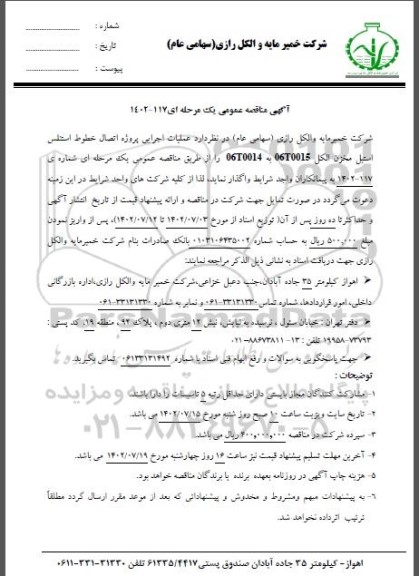 شماره :
تاریخ :
پیوست :
شرکت خمیر مایه و الکل رازی(سهامی عام)
آگهی مناقصه عمومی یک مرحله ای۱۱۷-۱۴۰۲
شرکت خمیرمایه والکل رازی (سهامی عام) در نظردارد عملیات اجرایی پروژه اتصال خطوط استنلس
استیل مخزن الکل 06T0015 به 06T0014 را از طریق مناقصه عمومی یک مرحله ای شماره ی
۱۱۷-۱۴۰۲ به پیمانکاران واجد شرایط واگذار نماید، لذا از کلیه شرکت های واجد شرایط در این زمینه
دعوت می‌گردد در صورت تمایل جهت شرکت در مناقصه و ارائه پیشنهاد قیمت از تاریخ انتشار آگهی
و حداکثرتا ده روز پس از آن( توزیع اسناد از مورخ ۱۴۰۲/۰۷/۰۳ تا ۱۴۰۲/۰۷/۱۲)، پس از واریز نمودن
مبلغ ۵۰۰،۰۰۰ ریال به حساب شماره ۰۱۰۳۱۰۶۴۳۵۰۰۲ بانک صادرات بنام شرکت خمیرمایه والکل
رازی جهت دریافت اسناد به نشانی ذیل الذکر مراجعه نمایند:
اهواز کیلومتر ۳۵ جاده آبادان،جنب دعبل خزاعی،شرکت خمیر مایه والکل رازی،اداره بازرگانی
داخلی، امور قراردادها، شماره تماس۳۳۱۳۱۳۳۰-۰۶۱ و نمابر به شماره ۳۳۱۳۱۳۳۰-۰۶۱
دفتر تهران : خیابان سئول ، نرسیده به نیایش، نبش ۱۲ متری دوم ، پلاک ۹۲، منطقه ۱۹، کد پستی :
۷۳۷۹۳-۱۹۹۵۸ تلفن : ۱۳- ۸۸۶۷۳۸۱۱-۰۲۱
جهت پاسخگویی به سوالات و رفع ابهام فنی اسناد با شماره ۰۶۱۳۳۱۳۱۴۹۲ تماس بگیرید.
توضیحات :
۱- مشارکت کنندگان مجاز بایستی دارای حداقل رتبه ۵ تاسیسات را دارا باشند.
۲- تاریخ سایت ویزیت ساعت ۱۰ صبح روز شنبه مورخ ۱۴۰۲/۰۷/۱۵ می باشد.
۳- سپرده شرکت در مناقصه ۴۰۰،۰۰۰،۰۰۰ریال می باشد.
۴- آخرین مهلت تسلیم پیشنهاد قیمت نیز ساعت ۱۶ روز چهارشنبه مورخ ۱۴۰۲/۰۷/۱۹ می باشد.
۵- هزینه چاپ آگهی در روزنامه بعهده برنده یا برندگان مناقصه خواهد بود.
۶- به پیشنهادات مبهم ومشروط و مخدوش و پیشنهاداتی که بعد از موعد مقرر ارسال گردد مطلقاً
ترتیب اثرداده نخواهد شد.
پایگاه اطلاع رسانی مناقصه و مزایده
۰۲۱-۸۸۳۴۹۶۷۰-۵
اهواز- کیلومتر ۳۵ جاده آبادان صندوق پستی۶۱۳۳۵/۴۴۱۷ تلفن ۳۱۳۳۰-۳۳۱-۰۶۱۱